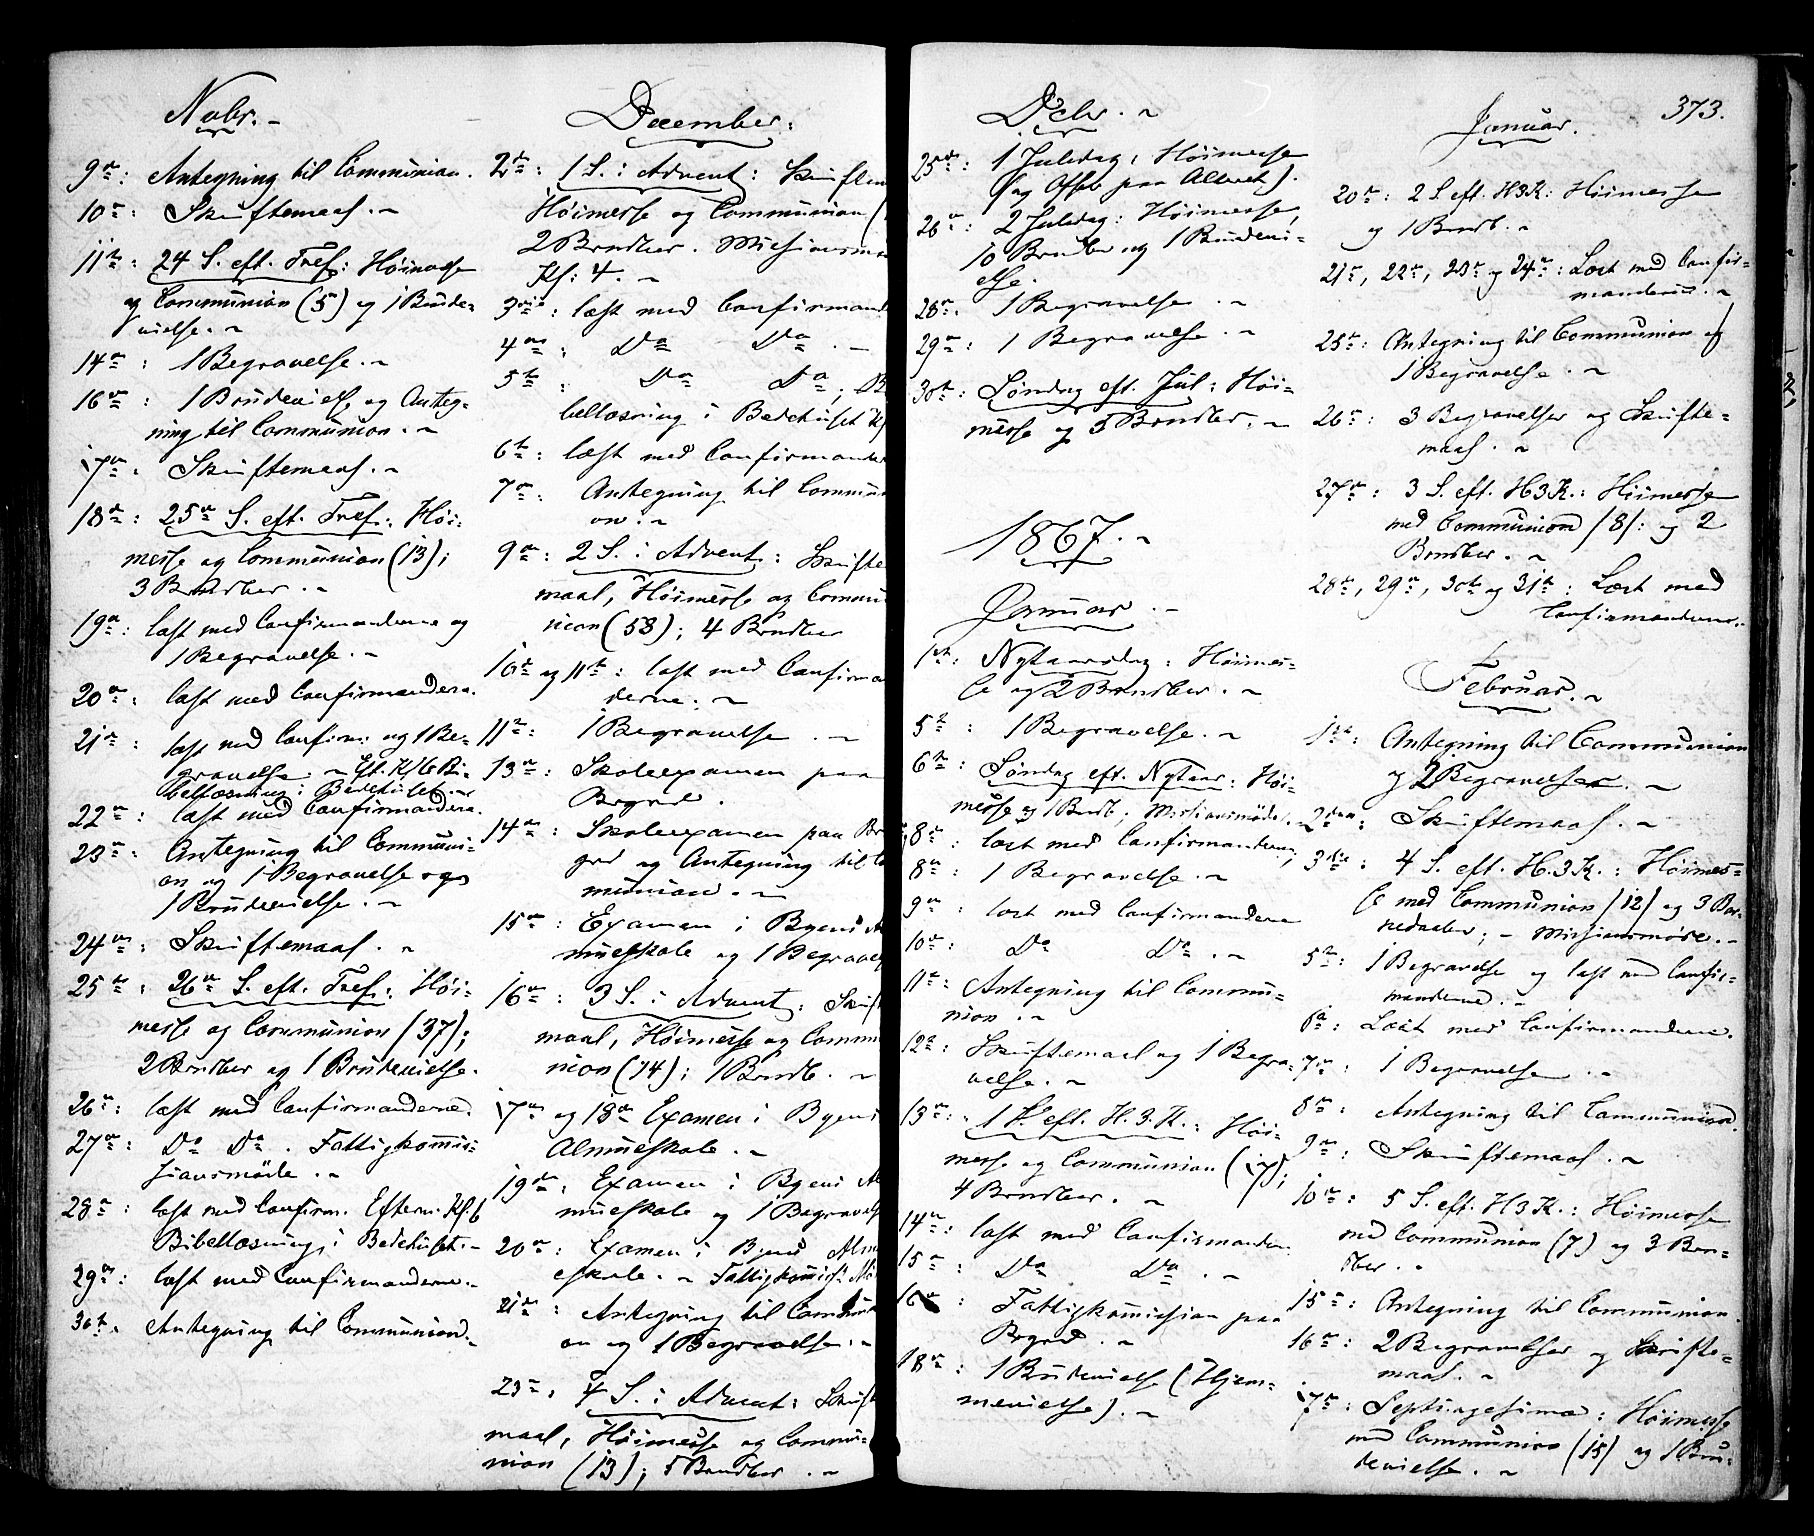 Novbr. -
9de: Antegning til Communion.
10de: Skriftemaal. -
11te: 24 S. eft. Tref: Høimesse
og Communion (5) og 1 Brude-
vielse. -
14de: 1 Begravelse. -
16de: 1 Brudeviels. og Anteg-
ning til Communion. -
17de: Skriftemaal. -
18de: 25de S. eft. Tref.: Høi-
messe og Communion (13);
3 Brndber. -
19de: læst med Confirmanderne og
1 Begravelse. -
20de: læst med Confirmanderne.
21de: læst med Confirm. og 1 Be-
gravelse. - Eft. Kl 6 Bi-
bellæsning i Bedehuset. -
22de: læst med Confirmanderne.
23de: Antegning til Communi-
on og 1 Begravelse og
1 Brudevielse. -
24de: Skriftemaal. -
25de: 26de S. eft. Tref.: Høi-
messe og Communion (37);
2 Brndber og 1 Brudevielse.
26de: læst med Confirmanderne.
27de: Do Do. Fattigkommis-
sionsmöde. -
28de: læst med Confirm. Efterm. Kl. 6
Bibellæsning i Bedehuset. -
29de: læst med Confirmanderne. -
30te. Antegning til Communion. -
December.
2den: 1 S. i Advent: Skriftem
Høimesse og Communion (
2 Brndber. Missionsmö
Kl: 4. -
3die: læst med Confirmand
4de: Do Do. -
5te: Do Do; B
bellæsning i Bedehuset Kl
6te: læst med Confirmander
7de: Antegning til Commun
on. -
9de: 2 S. i Advent: Skrifte
maal, Høimesse og Commu
nion (58); 4 Brndber
10de og 11te: læst med Confirma
derne. -
11te: 1 Begravelse. -
13de: Skoleexamen paa
Bogred.
14de: Skoleexamen paa Bo
gred og Antegning til Co
munion. -
15de: Examen i Byens Al
mueskole og 1 Begravels
16de: 3 S. i Advent: Skrift
maal, Høimesse og Commu
nion (74); 1 Brndb. -
17de og 18de Examen i Byens
Almueskole. -
19de. Examen i Byens Al
mueskole og 1 Begravels
20de: Examen i Byens Almu
eskole. - Fattigkommiss. Mö
21de: Antegning til Commun
on og 1 Begravelse. -
23de. 4 S. i Advent: Skrift
maal, Høimesse og Commu-
nion (13); 5 Brndber. -
Decbr. -
25de: 1 Juledag: Høimesse
(og Offer paa Alteret).
26de: 2 Juledag: Høimesse,
10 Brndber og 1 Brudevi-
else.
28de. 1 Begravelse. -
29de: 1 Begravelse. -
30te: Søndag eft. Jul: Høi-
messe og 5 Brndber. -
1867. -
Januar. -
1ste: Nytaarsdag: Høimes-
se og 2 Brndber. -
5te: 1 Begravelse. -
6te: Søndag eft. Nytaar: Høi-
messe og 1 Brndb; Missionsmöde. -
8de: læst med Confirmanderne;
8de: 1 Begravelse. -
9de: læst med Confirmanderne
10de: Do Do. -
11te: Antegning til Commu-
nion. -
12te: Skriftemaal og 1 Begra-
velse. -
13de: 1 S. eft. H. 3. K.: Høi-
messe og Communion (17);
4 Brndber. -
14de: læst med Confirmander.
15de: Do Do. -
16de: Fattigkommission paa
Bogred. -
18de: 1 Brudevielse (Hjem-
mevielse). -
373.
Januar.
20de: 2 S. eft. H3K: Høimesse
og 1 Brndb. -
21de, 22de, 23de og 24de: Læst med Confir-
manderne. -
25de: Antegning til Communion og
1 Begravelse. -
26de: 3 Begravelser og Skrifte-
maal. -
27de: 3 S. eft. H3K.: Høimesse
med Communion /8/: og 2
Brndber. -
28de, 29de, 30te og 31te: Læst med
Confirmanderne. -
Februar. -
1ste: Antegning til Communion
og 2 Begravelser. -
2den: Skriftemaal. -
3die: 4 S. eft. H. 3 K.: Høimes-
se med Communion /12/ og 3 Bar-
nedaaber; - Missionsmöde. -
5te: 1 Begravelse og læst med Confir-
manderne. -
6te: Læst med Confirmanderne.
7de: 1 Begravelse. -
8de: Antegning til Communion.
9de: Skriftemaal. -
10de: 5 S. eft. H3K.: Høimesse
med Communion (7) og 3 Brn-
dber. -
15de: Antegning til Communion.
16de: 2 Begravelser og Skrifte-
maal. -
17de: Septuagesima: Høimesse
med Communion (15) og 1 Bru-
devielse. -